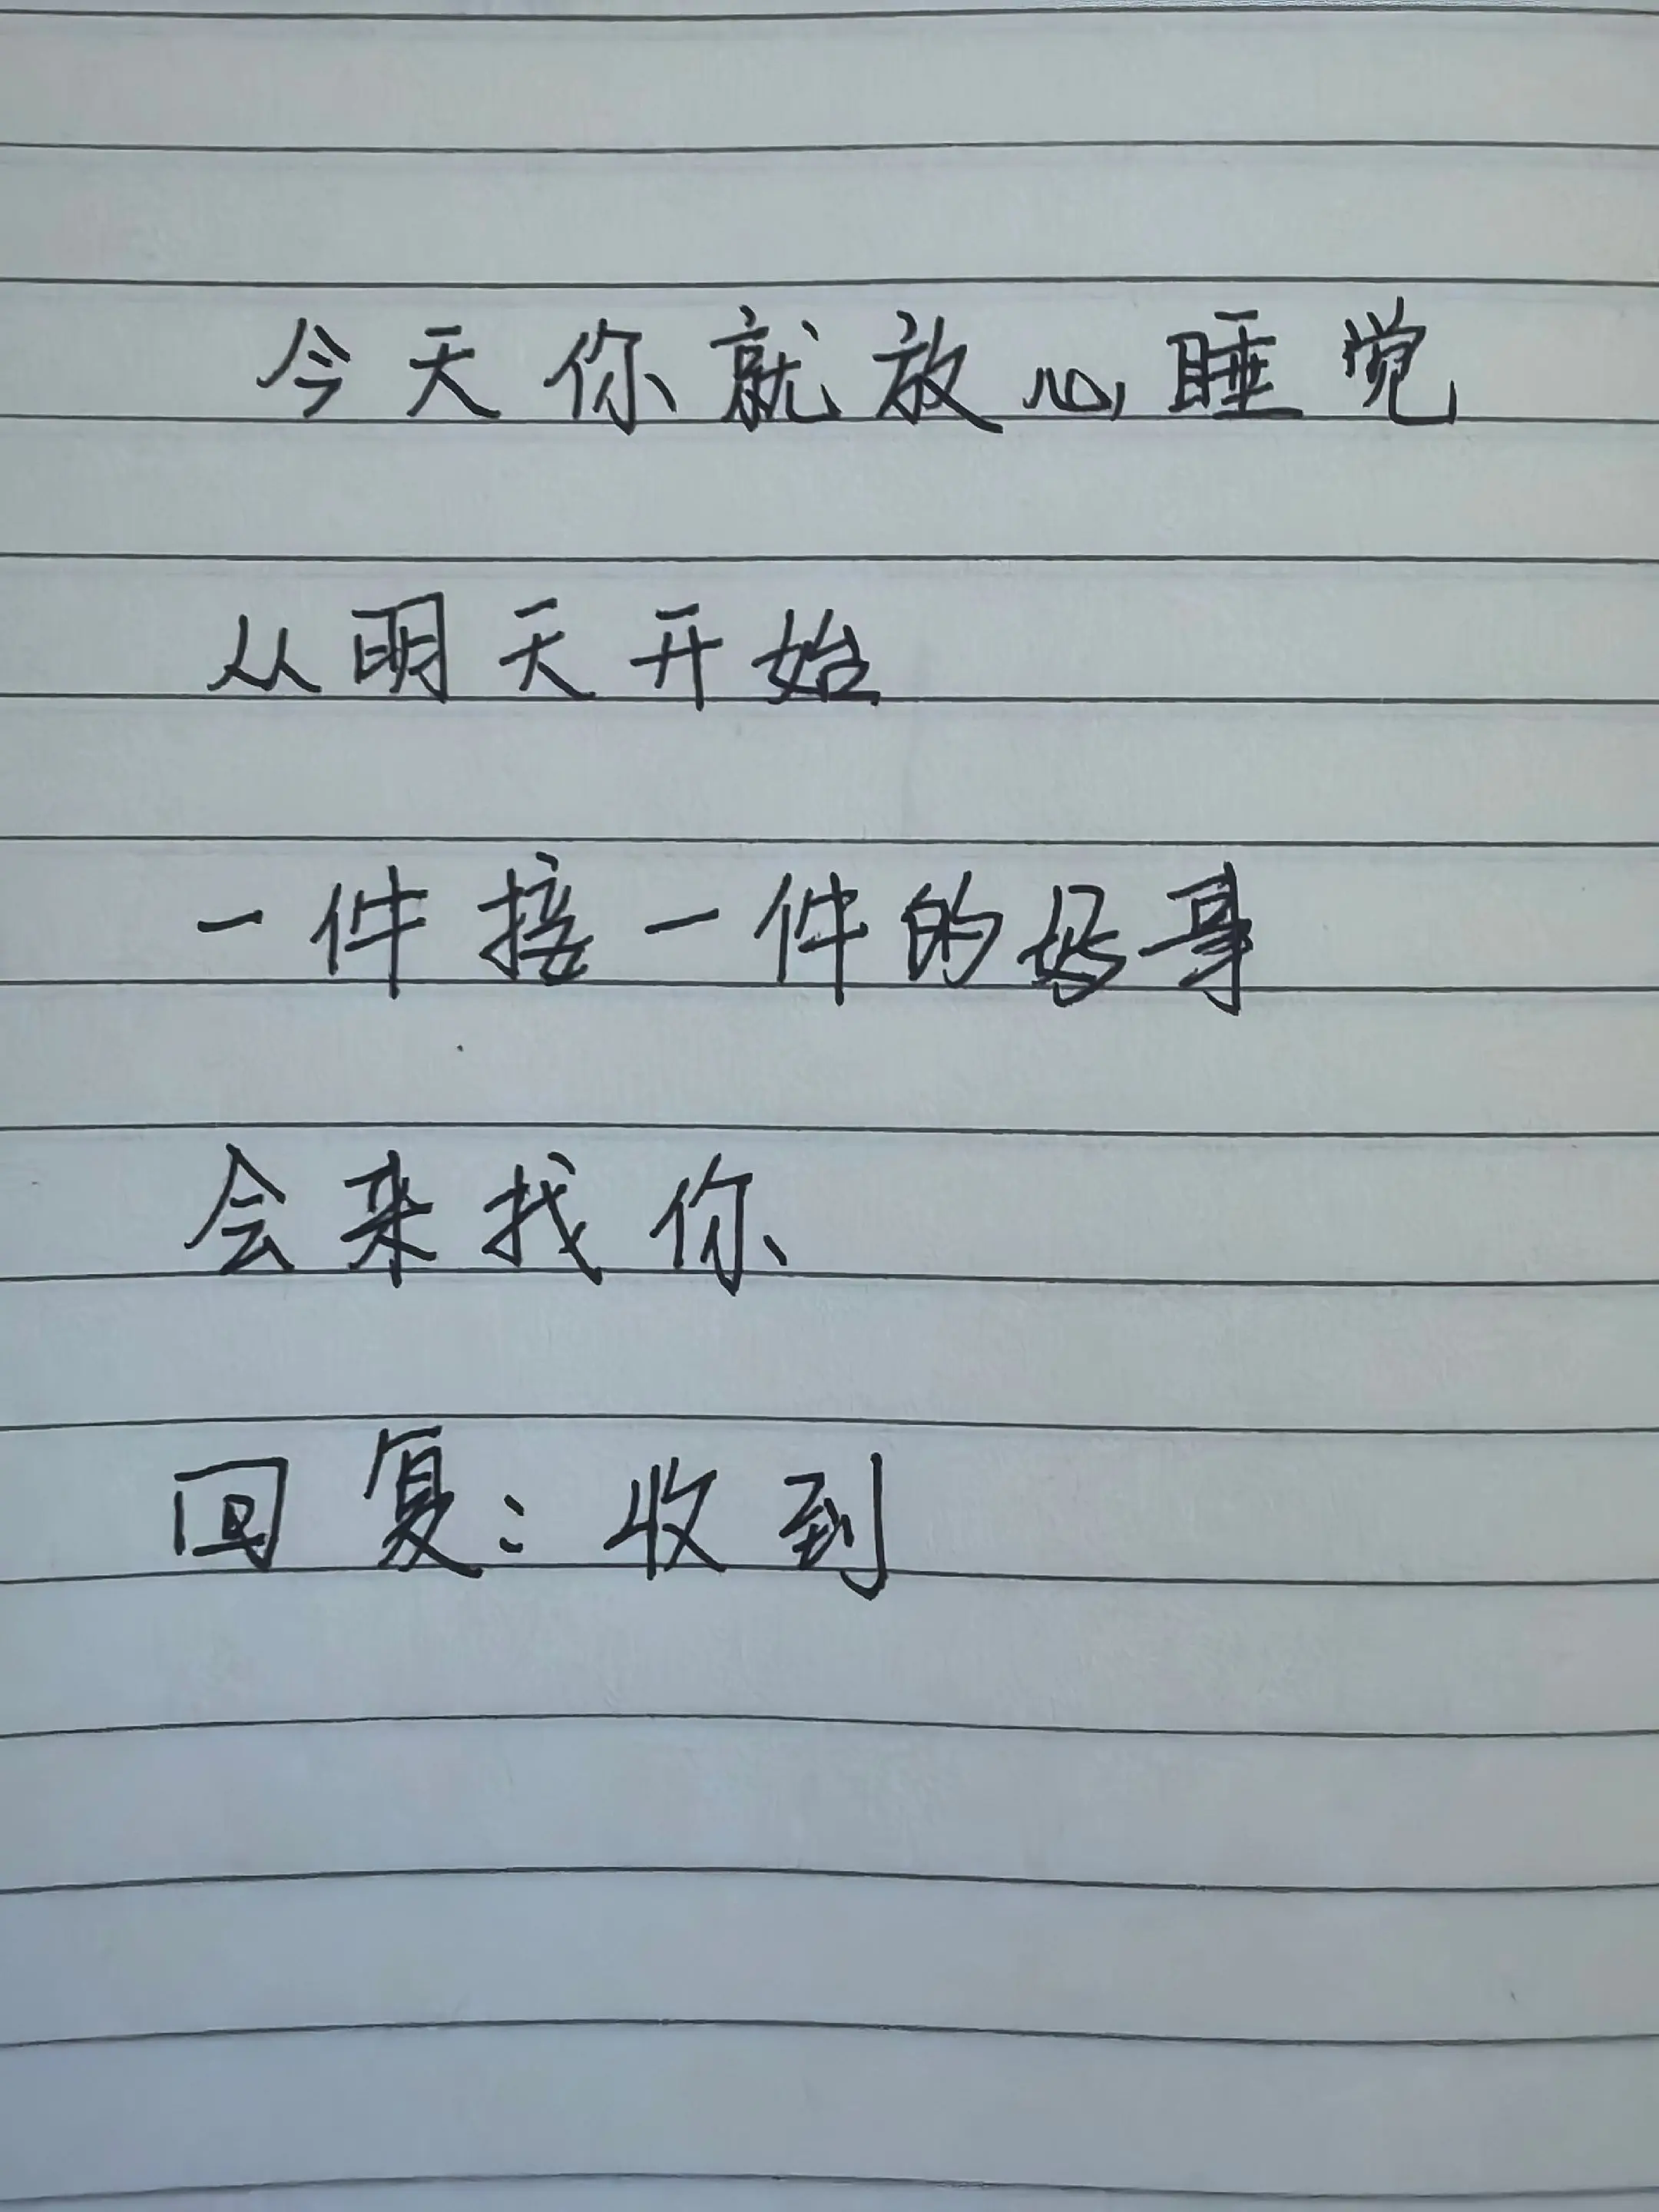 今天你就放心睡觉
从明天开始
一件接一件的好事
会来找你
回复：收到